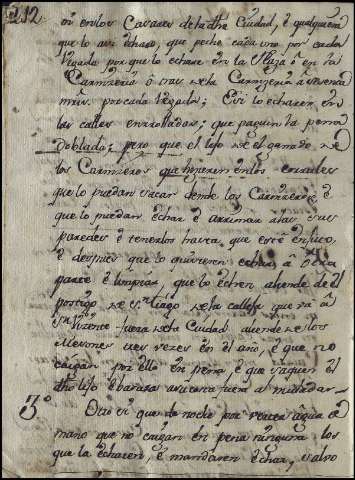 212
en los Casares de la dha Ciudad, é qualquiera
que lo asi echase que peche cada uno por cada
vegada porque lo echare en la Plaza ó en la
Carniceria ó tras de la Carniceria sesenta
mrs. por cada vegada; E si lo echaren en
las calles enrrolladas; que paguen la pena
doblada; pero que el lijo de el ganado de
los Carniceros que hicieren en los corrales
que lo puedan sacar dende los Carniceros é
que lo puedan echar é arrimar á las sus
paredes é tenerlos hasta que esté enjuto.
é despues que lo quisieren echar á otra
parte é limpiar, que lo echen ahende del
postigo de Sn. tiago de la calleja que va á
Sn. Vizente fuera de la Ciudad auende de los
Mesones tres vezes en el año, é que no
caigan por ello en pena, é que saquen el
dho lijo é basura fuera al muladar.
3º Otro si que de noche por verter agua
mano que no caigan en pena ninguna los
que la echaren é mandaren echar, salvo